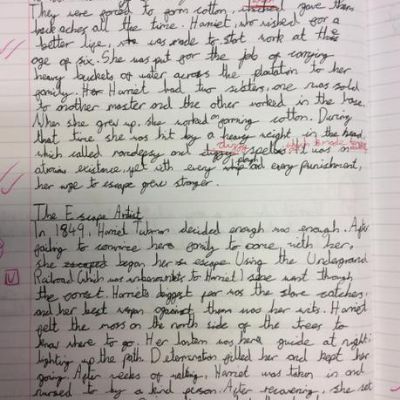 They were forced to farm cotton, which gave them
back aches all the time. Harriet, who wished for a
better life, was made to start work at the
age of six. She was put for the job of carrying
heavy buckets of water across the plantation to her
family. Harriet had two sisters, one was sold
to another master and the other worked in the house.
When she grew up, she worked on farming cotton. During
that time, she was hit by a heavy weight, in the head
which called narcolepsy and dizzy spells. It was an
existence, yet with every whip and every punishment,
her urge to escape grew stonger.
The Escape Artist
In 1849, Harriet Tubman decided enough was enough. After
failing to convince her family to come with her,
she began her escape. Using the Underground
Railroad (which was unbeknownst to Harriet) she went through
the forrest. Harriets biggest fear was the slave catchers,
and her best wepon against them was her wits. Harriet
felt the moss on the north side of the trees to
know where to go. Her lantern was her guide at night,
lighting up the path. Determination filled her and kept her
going. After weeks of walking, Harriet was taken in and
nursed to by a kind person. After recovering, she set